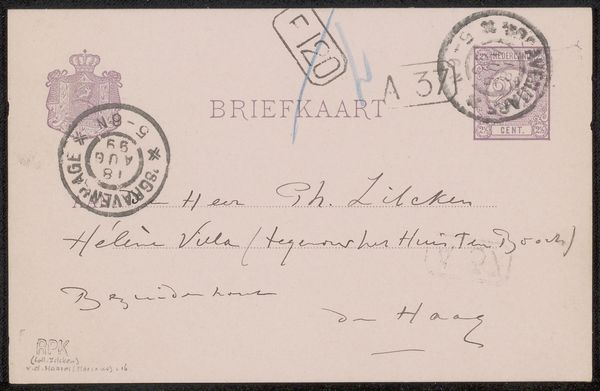 E 120
A 37
BRIEFKAART
NEDERLAND
2½ CENT. 2½
'SGRAVENHAGE
5-8N
18
AUG
99
Aan den Heer Ph. Zilcken
Hélène Villa (tegenover het Huis Ten Bosch)
Bezuidenhout
den Haag
RPK
(coll. Zilcken)